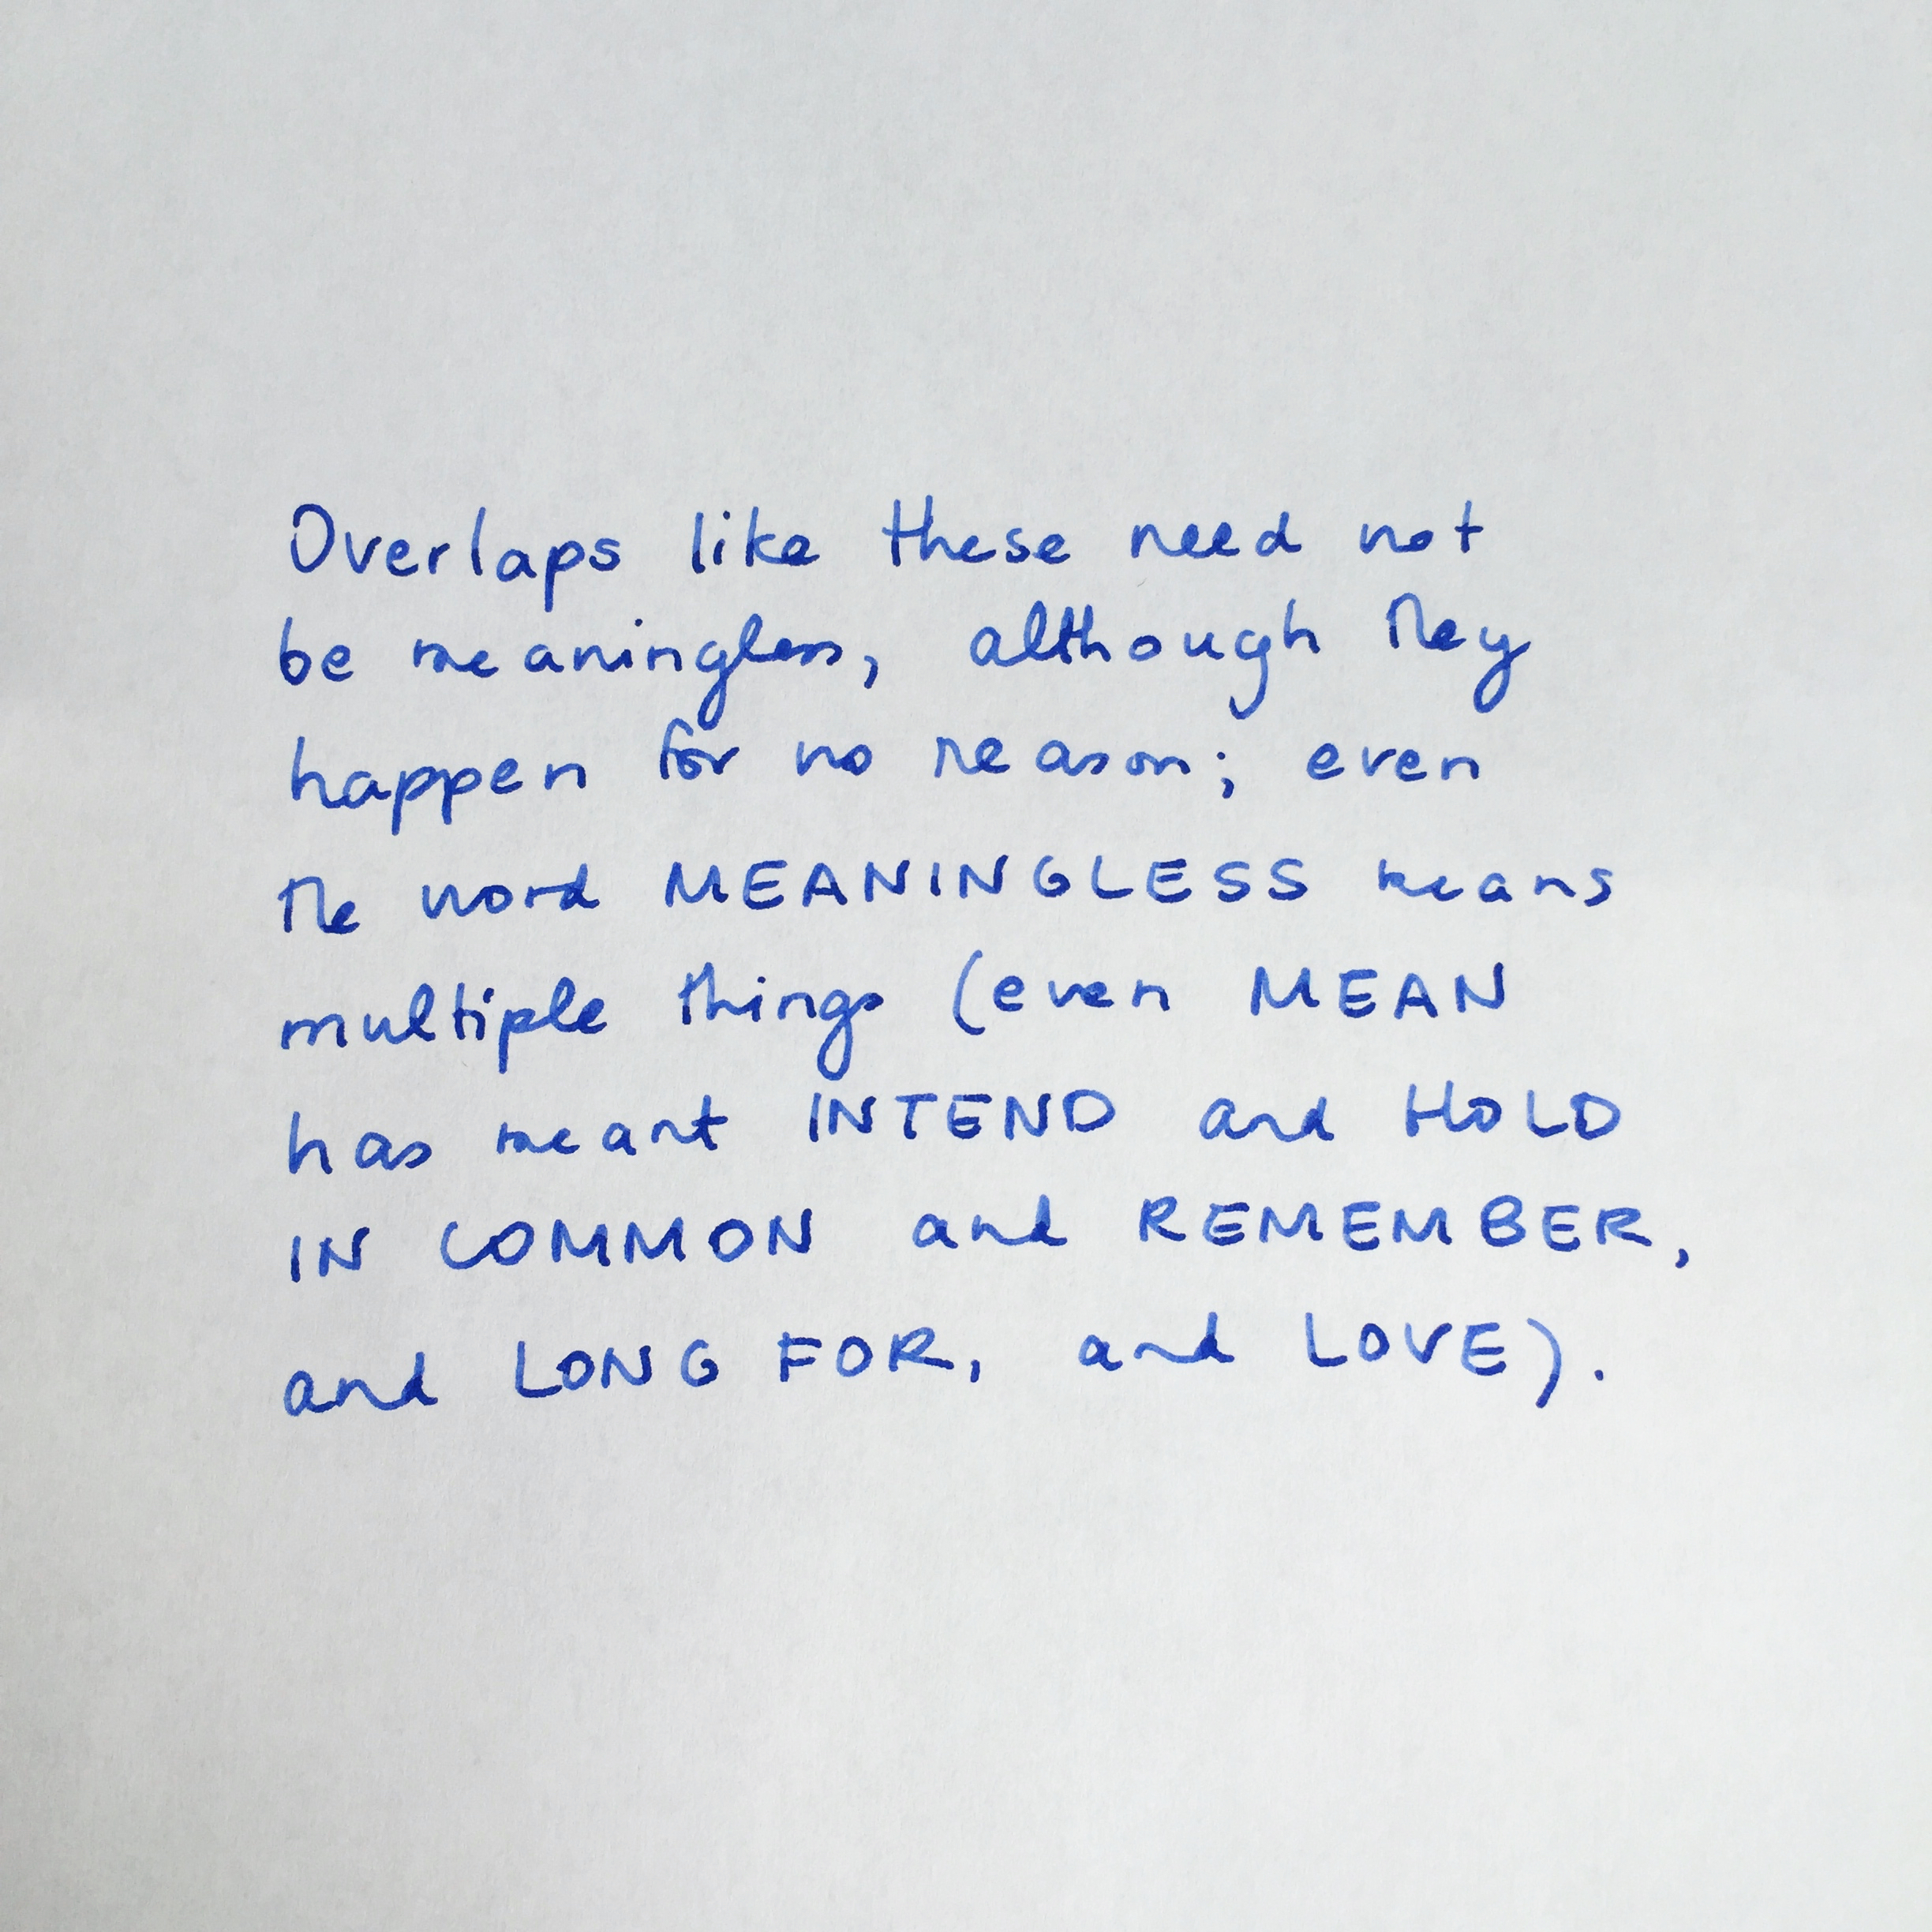 Overlaps like these need not
be meaningless, although they
happen for no reason; even
the word MEANINGLESS means
multiple things (even MEAN
has meant INTEND and HOLD
IN COMMON and REMEMBER,
and LONG FOR, and LOVE).